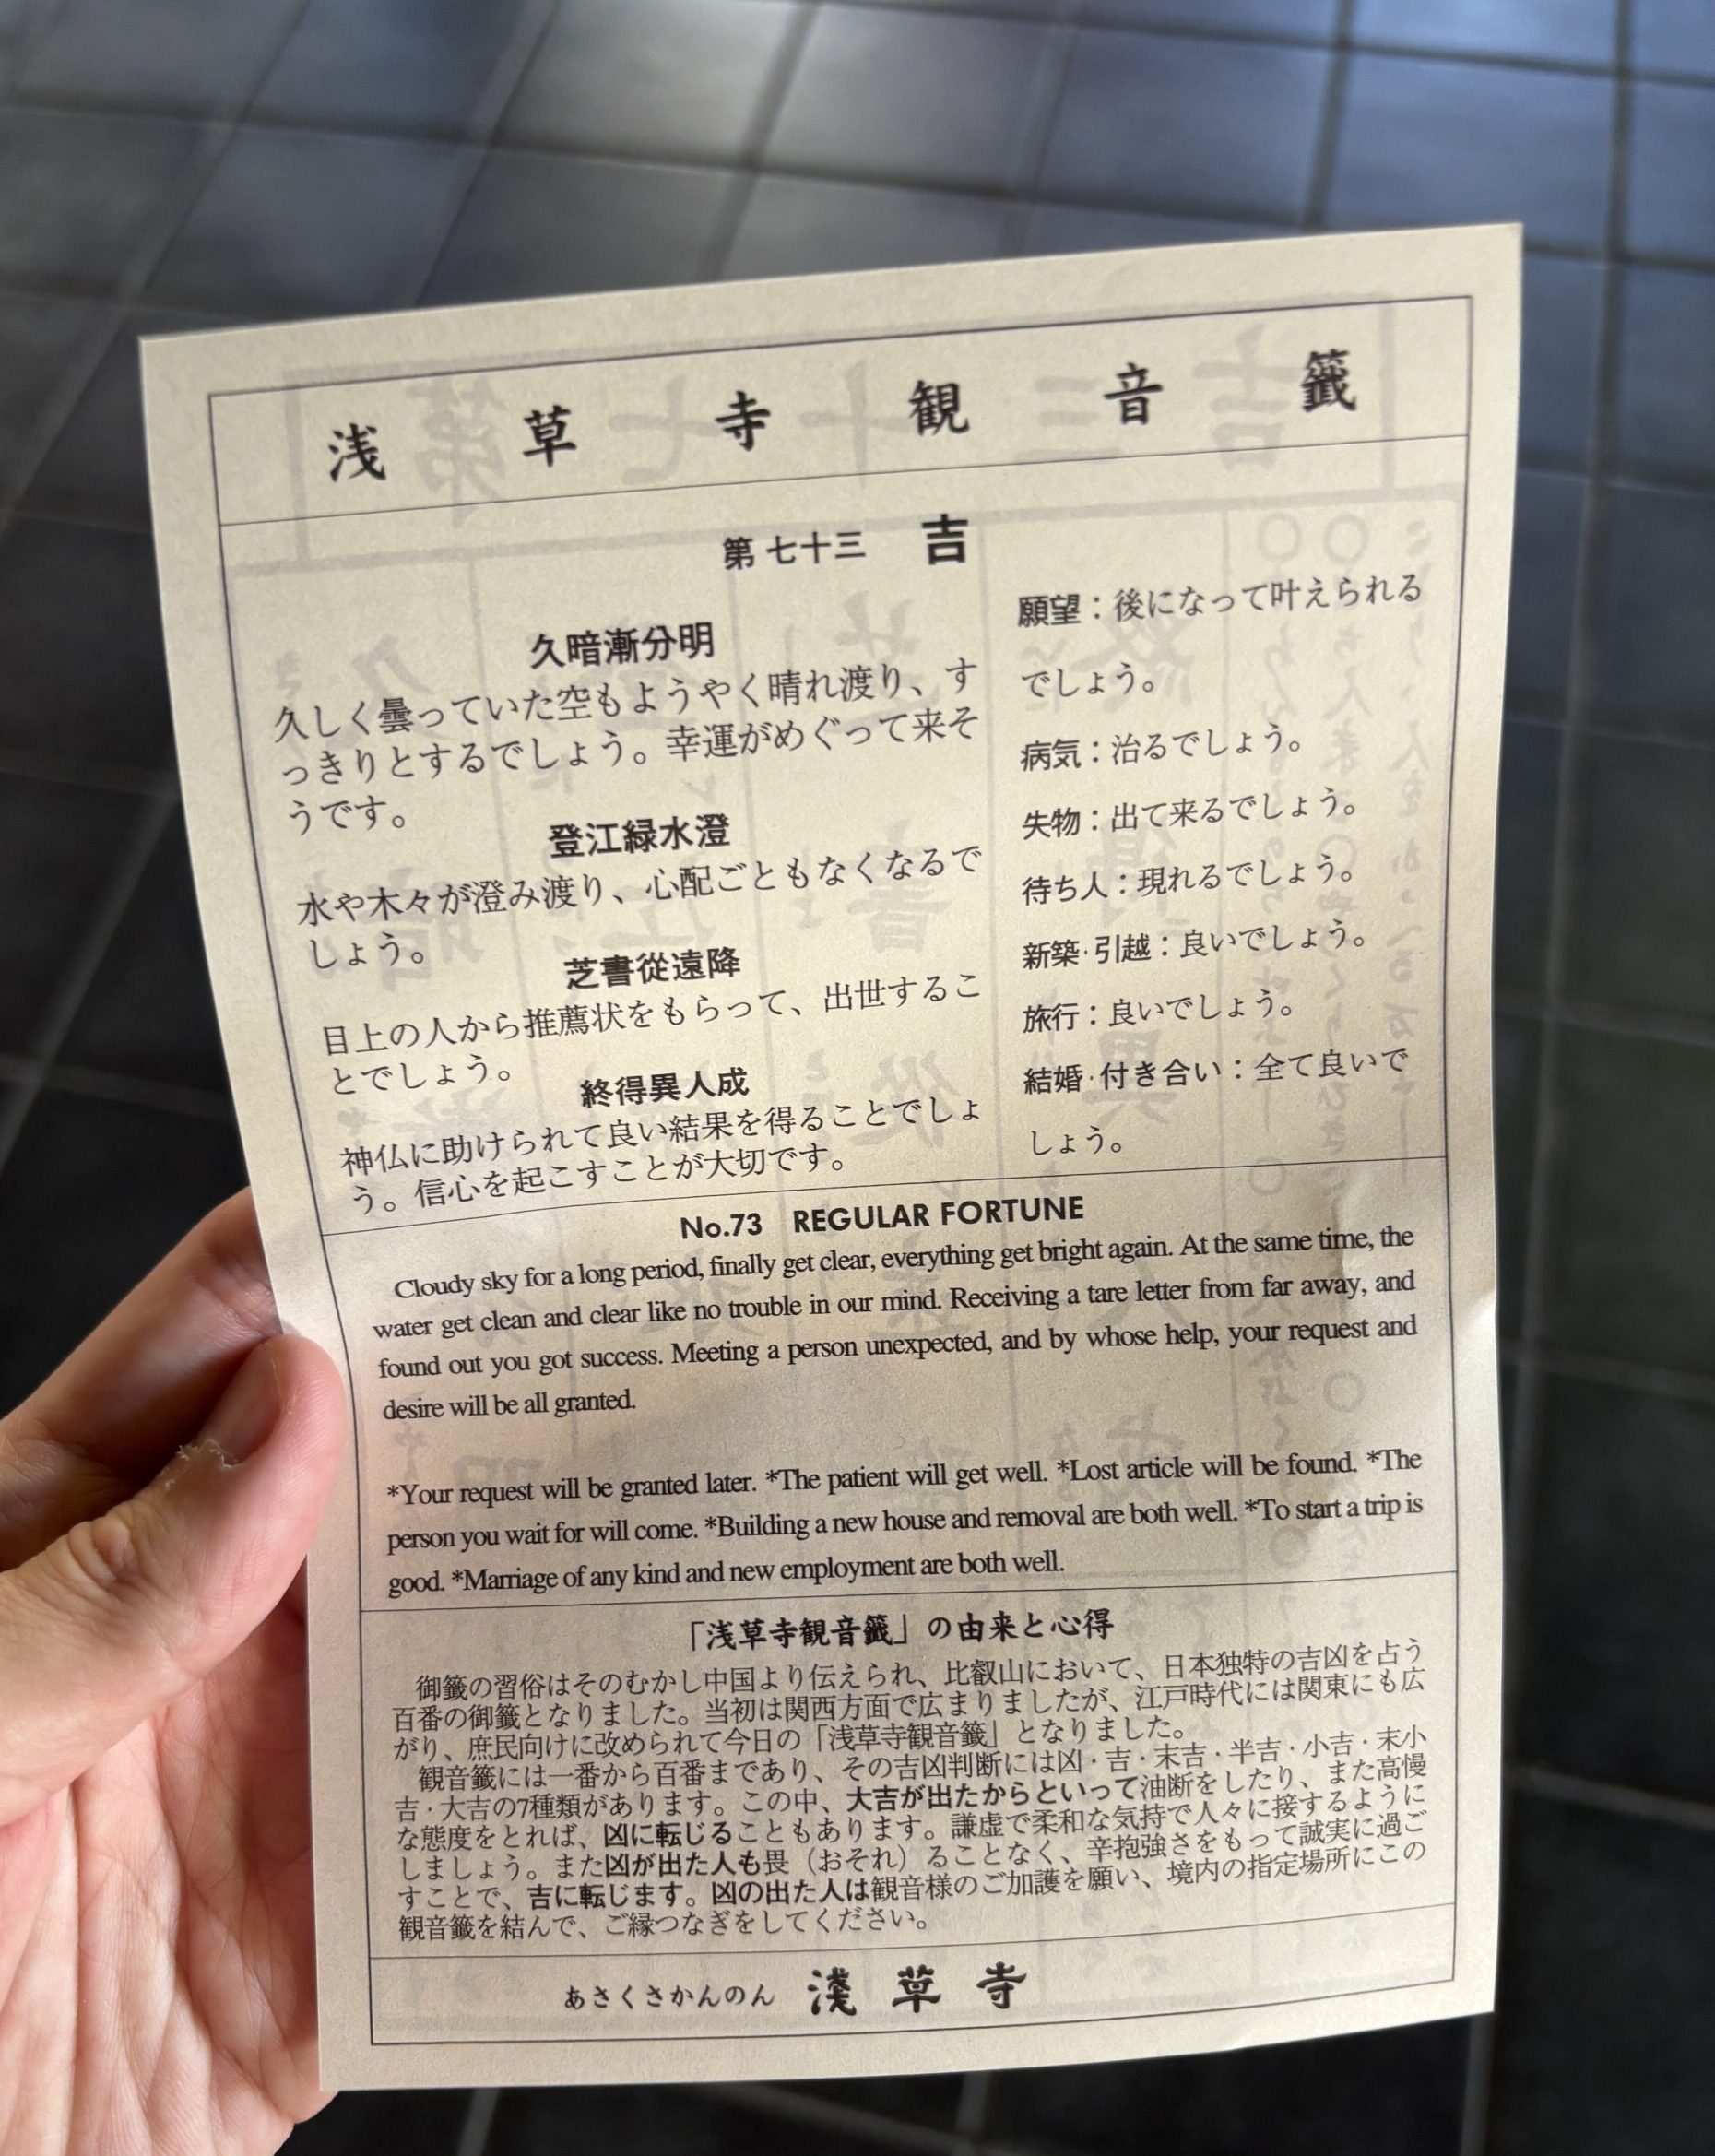 浅草寺観音籤
第七十三 吉
久暗漸分明
久しく曇っていた空もようやく晴れ渡り、す
っきりとするでしょう。幸運がめぐって来そ
うです。
登江緑水澄
水や木々が澄み渡り、心配ごともなくなるで
しょう。
芝書從遠降
目上の人から推薦状をもらって、出世するこ
とでしょう。
終得異人成
神仏に助けられて良い結果を得ることでしょ
う。信心を起こすことが大切です。
願望：後になって叶えられる
でしょう。
病気：治るでしょう。
失物：出て来るでしょう。
待ち人：現れるでしょう。
新築·引越：良いでしょう。
旅行：良いでしょう。
結婚·付き合い：全て良いで
しょう。
No.73 REGULAR FORTUNE
Cloudy sky for a long period, finally get clear, everything get bright again. At the same time, the
water get clean and clear like no trouble in our mind. Receiving a tare letter from far away, and
found out you got success. Meeting a person unexpected, and by whose help, your request and
desire will be all granted.
*Your request will be granted later. *The patient will get well. *Lost article will be found. *The
person you wait for will come. *Building a new house and removal are both well. *To start a trip is
good. *Marriage of any kind and new employment are both well.
「浅草寺観音籤」の由来と心得
御籤の習俗はそのむかし中国より伝えられ、比叡山において、日本独特の吉凶を占う
百番の御籤となりました。当初は関西方面で広まりましたが、江戸時代には関東にも広
がり、庶民向けに改められて今日の「浅草寺観音籤」となりました。
観音籤には一番から百番まであり、その吉凶判断には凶・吉・末吉・半吉・小吉・末小
吉・大吉の7種類があります。この中、大吉が出たからといって油断をしたり、また高慢
な態度をとれば、凶に転じることもあります。謙虚で柔和な気持で人々に接するように
しましょう。また凶が出た人も畏（おそれ）ることなく、辛抱強さをもって誠実に過ご
すことで、吉に転じます。凶の出た人は観音様のご加護を願い、境内の指定場所にこの
観音籤を結んで、ご縁つなぎをしてください。
あさくさかんのん 淺草寺